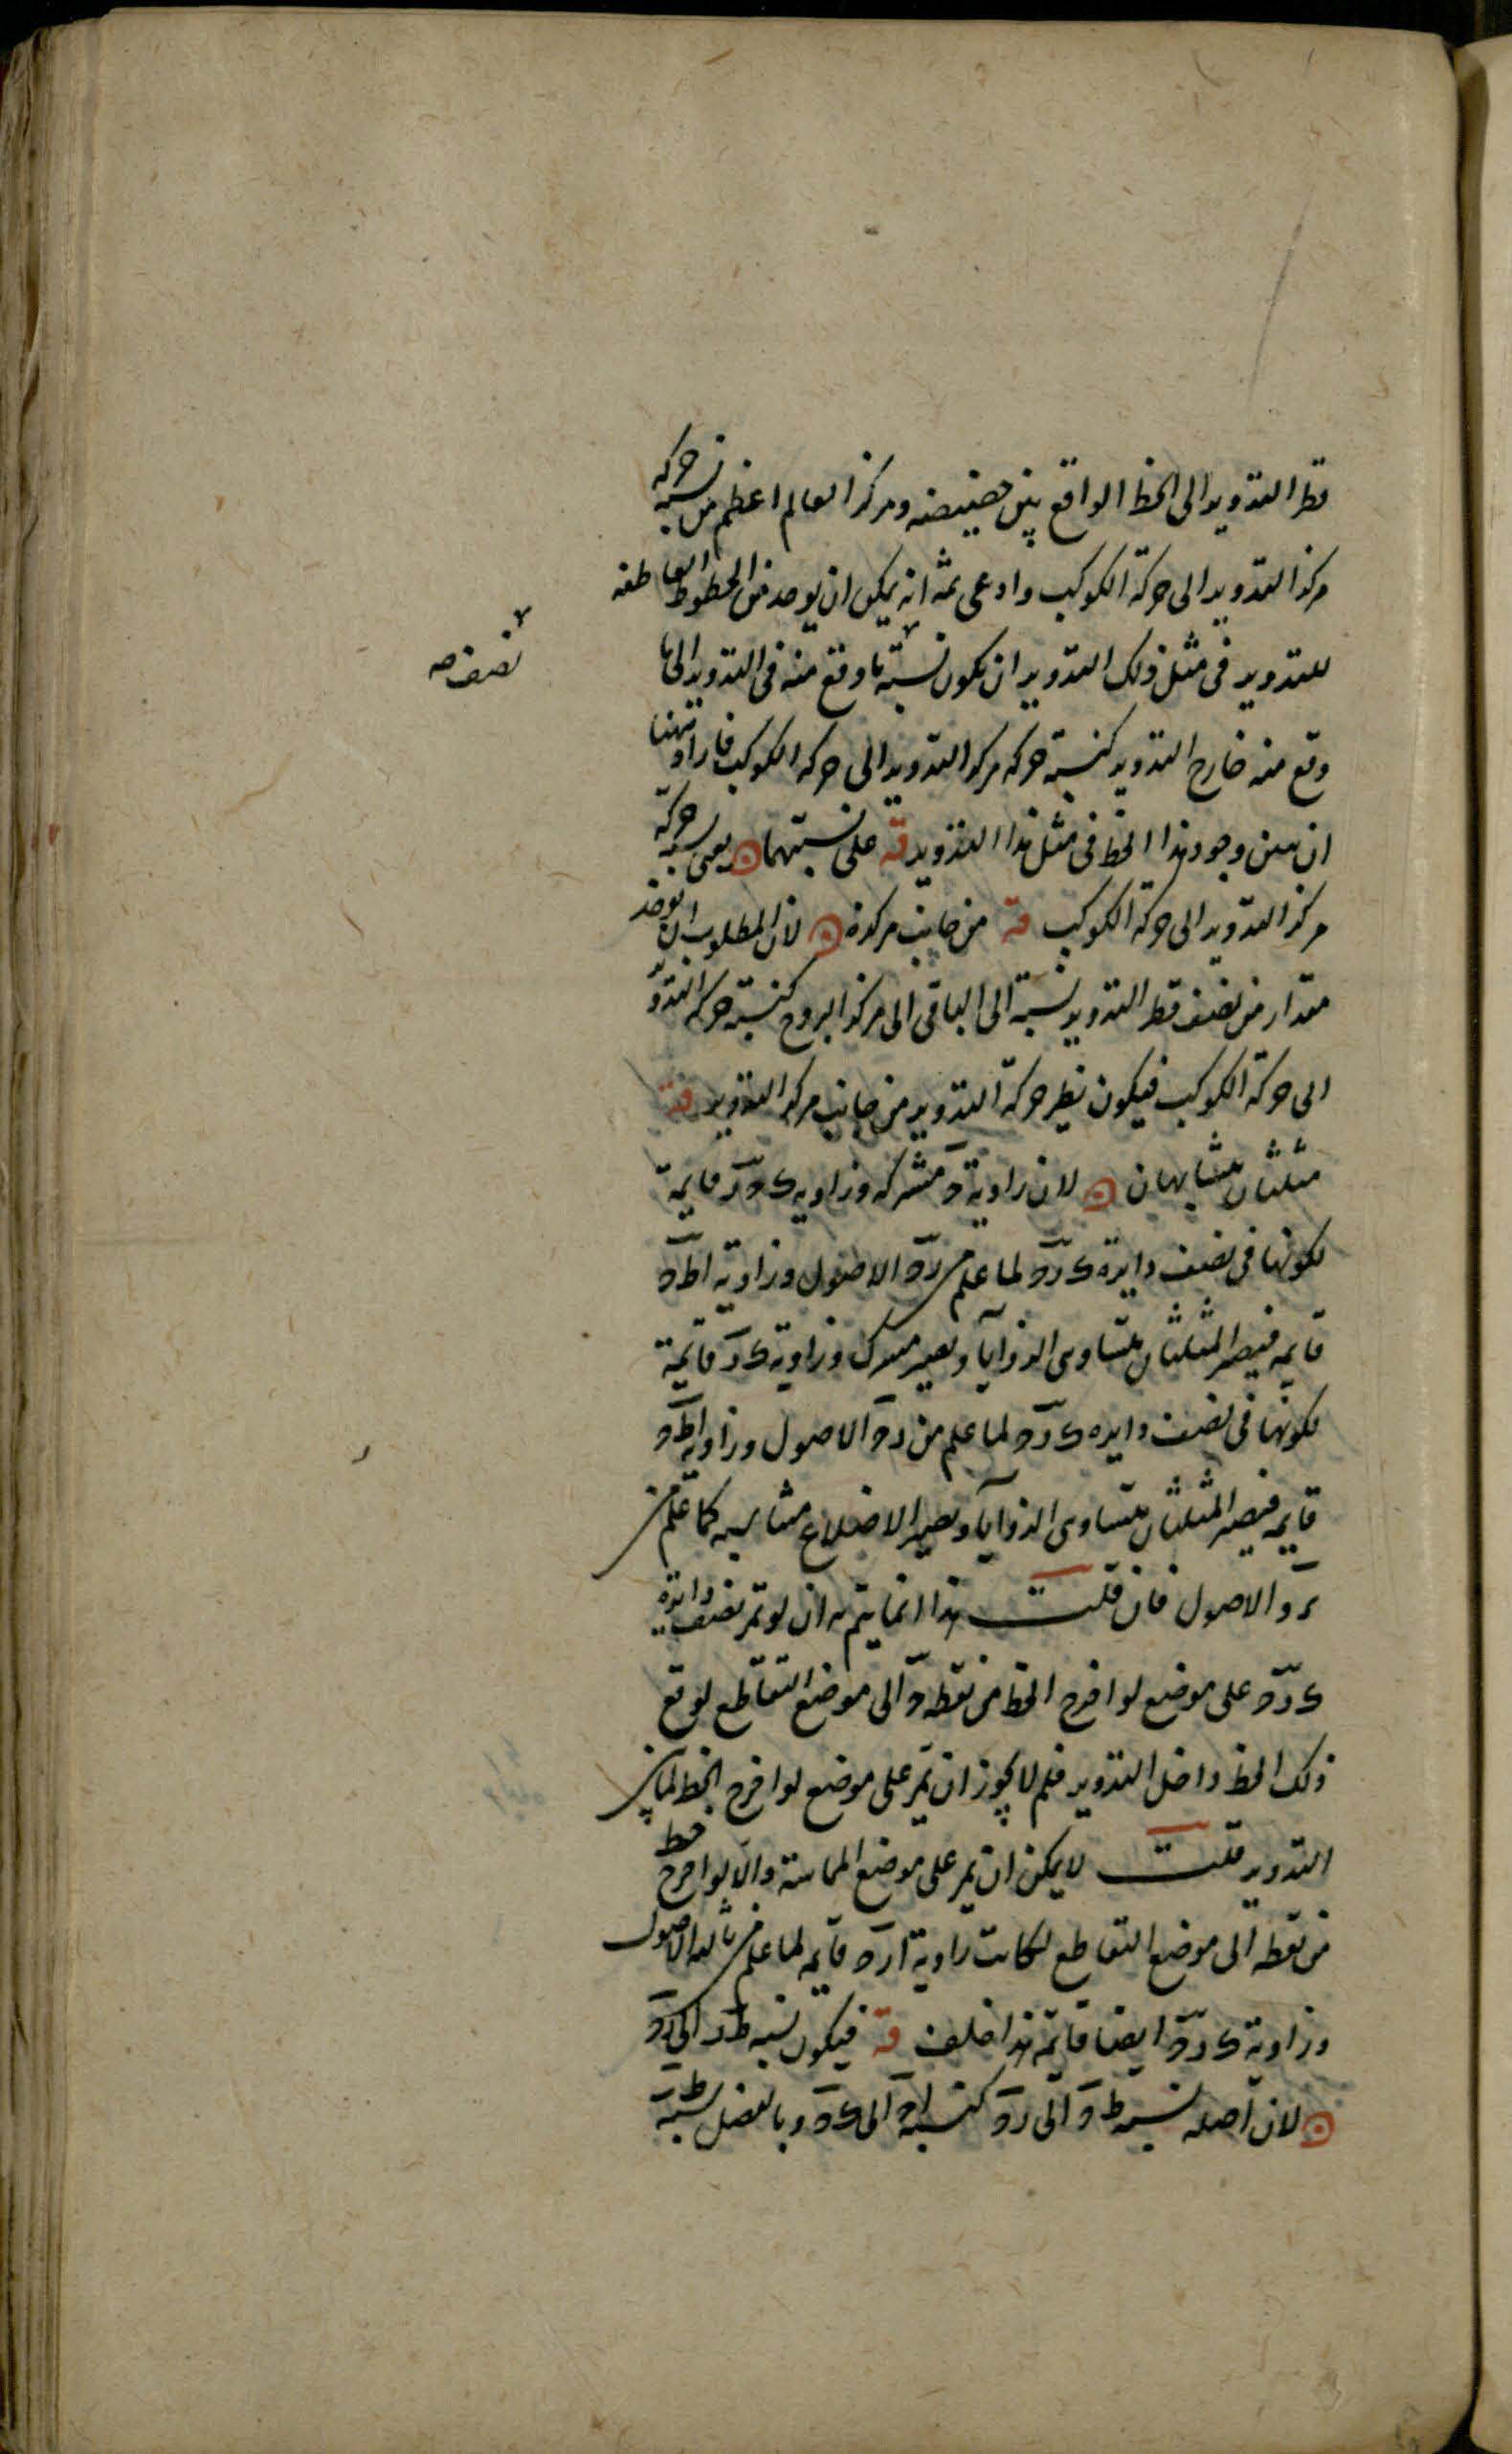 قطر التدوير الى الخط الواقع بين حضيضه ومركز العالم اعظم من نسبة حركة
مركز التدوير الى حركة الكوكب وادعى ثمه انه يمكن ان يوجد من الخطوط القاطعه
للتدوير فى مثل ذلك التدوير ان يكون نسبة ما وقع منه فى التدوير الى ما
نصف صح
وقع منه خارج التدوير كنسبة حركه مركز التدوير الى حركه الكوكب فاراد ههنا
ان يبين وجود هذا الخط فى مثل هذا التدوير قه على نسبتهما يعنى نسبة حركة
مركز التدوير الى حركة الكوكب قه من جانب مركزه لان المطلوب ان يوجد
مقدار من نصف قطر التدوير نسبته الى الباقى الى مركز البروج كنسبة حركه التدوير
الى حركة الكوكب فيكون نظير حركة التدوير من جانب مركز التدوير قه
مثلثان متشابهان لان زاوية د مشتركه وزاويه ك د ر قايمة
لكونها فى نصف دايرة ك ر د لما علم من الاصول وزاوية ا ط د
قايمه فيصير المثلثان متساوى الزوايا ويصير وزاوية ك ر د قايمة
لكونها فى نصف دايره ك ر د لما علم من الاصول وزاوية ا ط د
قايمه فيصير المثلثان متساوى الزوايا ويصير الاضلاع متناسبه كما علم من
الاصول فان قلت هذا انما يتم ان لو تمر نصف دايرة
ك ر د على موضع لو اخرج الخط من نقطه د الى موضع التقاطع لوقع
ذلك الخط داخل التدوير فلم لا يجوز ان تمر على موضع لو اخرج الخط لماس
التدوير قلت لا يمكن ان يمر على موضع المماسة والا لو اخرج خط
من نقطه ا الى موضع التقاطع لكانت زاوية ا ر د قايمه لما علم من ثالثه الاصول
وزاوية ك ر د ايضا قايمة هذا خلف قه فيكون نسبه ط ر الى ر د
لان اصله نسبه ط د الى ر د كنسبة ا د الى ك د وبالفصل نسبة ط ر